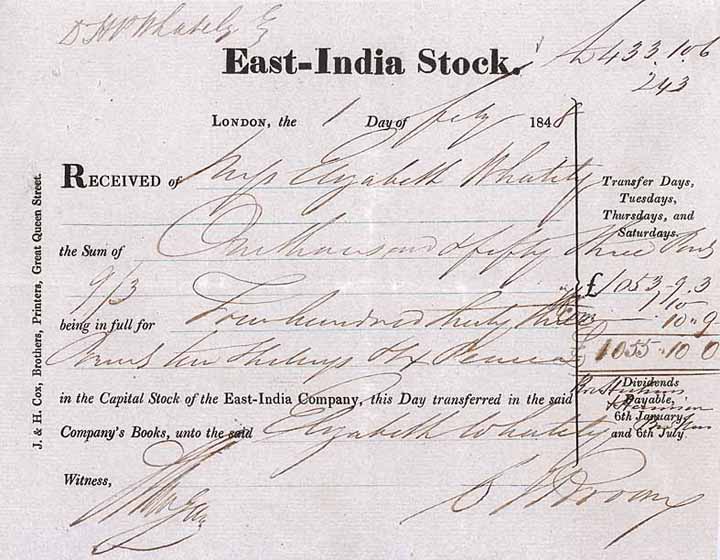 Whately
East-India Stock.
433.10.6
243
London, the 1 Day of Feby 1848
Received of Miss Elizabeth Whately
Transfer Days,
Tuesdays,
Thursdays, and
Saturdays.
the Sum of One thousand & fifty three Pounds
9/3
£1053-9.3
1.10
10.9
1055.10 0
being in full for Four hundred thirty three
Pounds ten Shillings & Six Pence
in the Capital Stock of the East-India Company, this Day transferred in the said
Company's Books, unto the said Elizabeth Whately
Dividends
Payable,
6th January
and 6th July
Witness,
J. & H. Cox, Brothers, Printers, Great Queen Street.